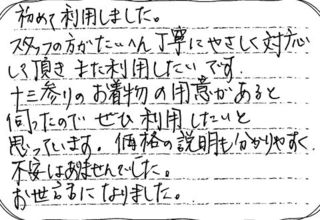 初めて利用しました。
スタッフの方がたいへん丁寧にやさしく対応
して頂き また利用したいです。
十三参りのお着物の用意があると
伺ったので ぜひ利用したいと
思っています。価格の説明も分かりやすく
不安はありませんでした。
お世話るになりました。